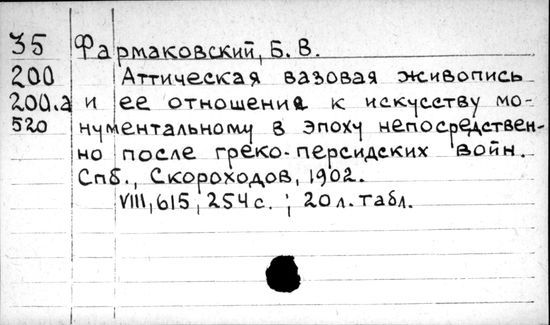 35 Фармаковский, Б. В.
200 Аттическая вазовая живопись
200.а и ее отношения к искусству мо-
520 нументальному в эпоху непосредствен-
но после греко-персидских войн.
Спб., Скороходов, 1902.
VIII, 615, 254 с.; 20 л. табл.